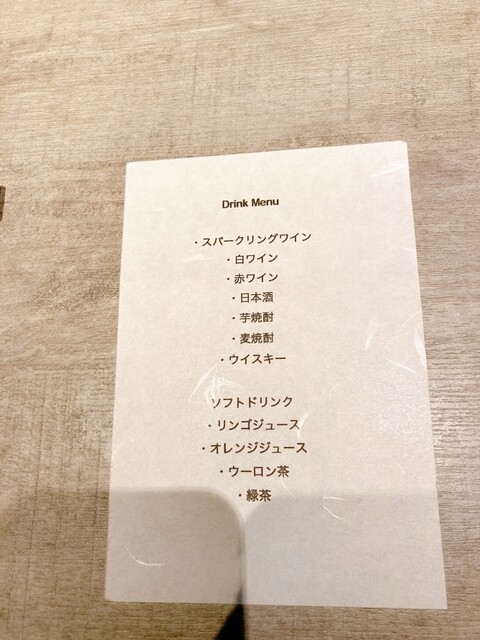 Drink Menu
・スパークリングワイン
・白ワイン
・赤ワイン
・日本酒
・芋焼酎
・麦焼酎
・ウイスキー
ソフトドリンク
・リンゴジュース
・オレンジジュース
・ウーロン茶
・緑茶